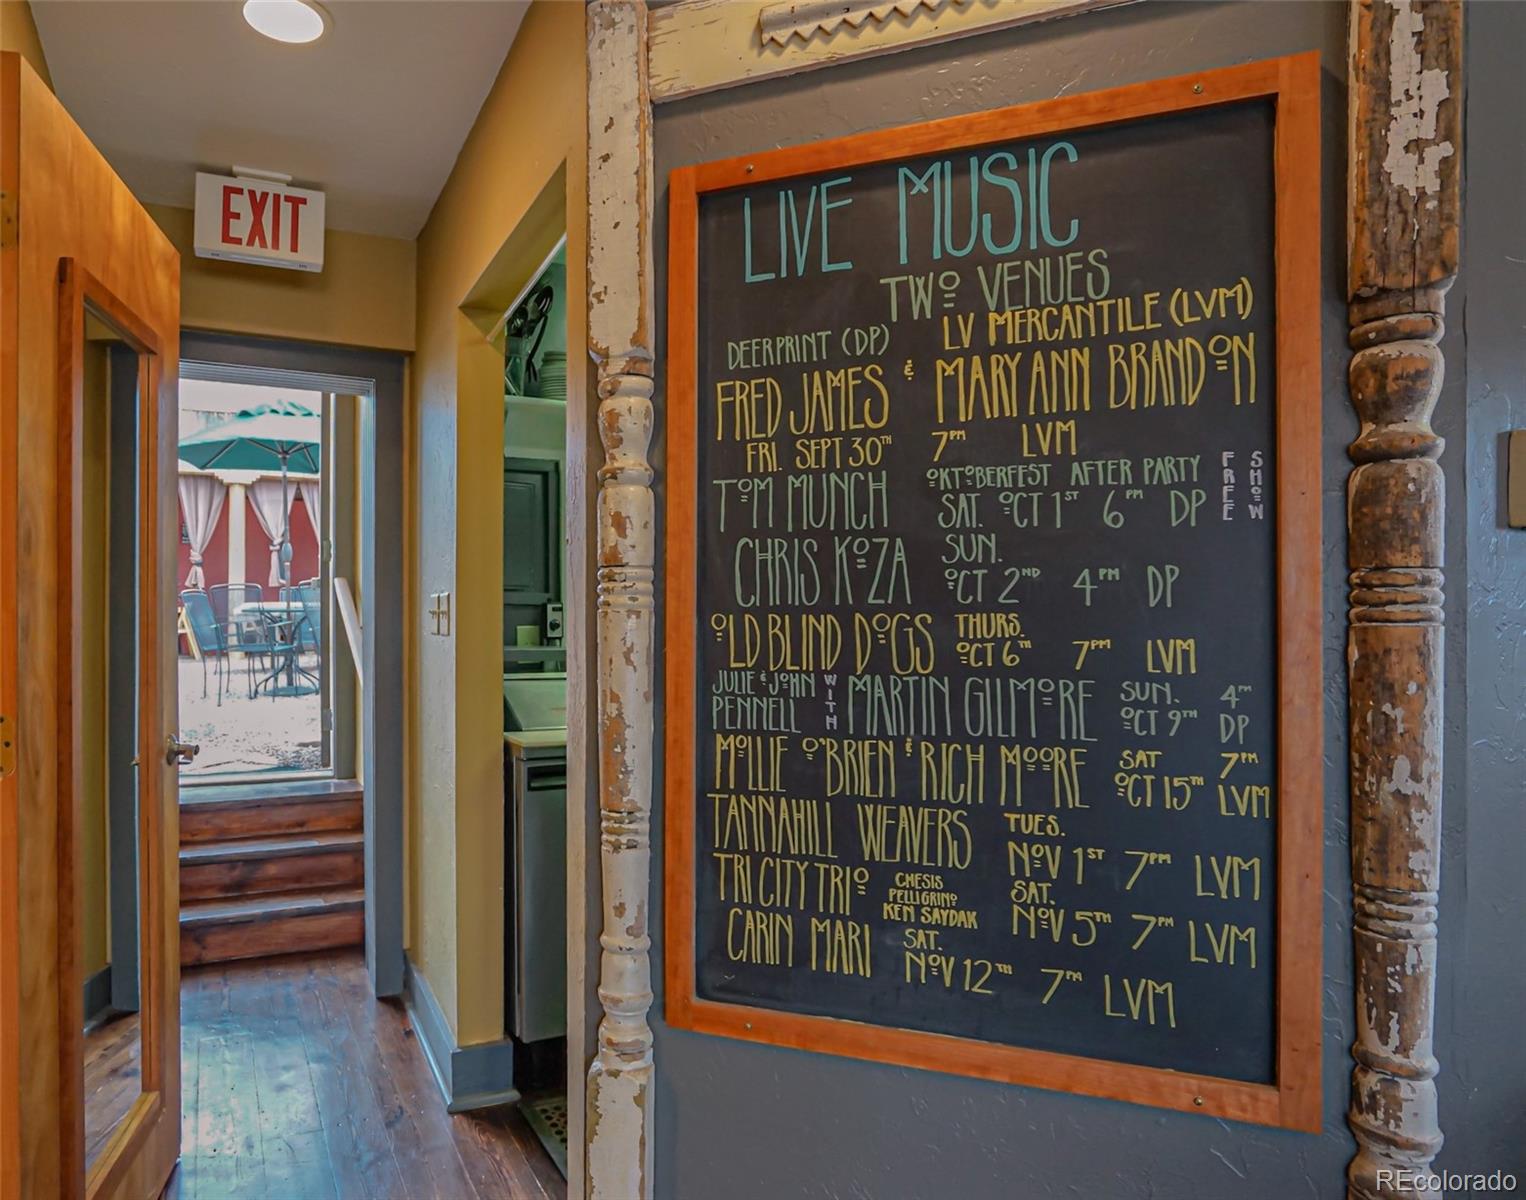 EXIT
LIVE MUSIC
TWO VENUES
DEERPRINT (DP)
LV MERCANTILE (LVM)
FRED JAMES & MARY ANN BRANDON
FRI. SEPT 30TH 7PM LVM
TOM MUNCH OKTOBERFEST AFTER PARTY
SAT. OCT 1ST 6PM DP FREE SHOW
CHRIS KOZA SUN.
OCT 2ND 4PM DP
OLD BLIND DOGS THURS.
OCT 6TH 7PM LVM
JULIE & JOHN PENNELL WITH MARTIN GILMORE SUN. 4PM
OCT 9TH DP
MOLLIE O'BRIEN & RICH MOORE SAT 7PM
OCT 15TH LVM
TANNAHILL WEAVERS TUES.
NOV 1ST 7PM LVM
TRI CITY TRIO CHESIS
PELLIGRINO
KEN SAYDAK
SAT.
NOV 5TH 7PM LVM
CARIN MARI SAT.
NOV 12TH 7PM LVM
REcolorado